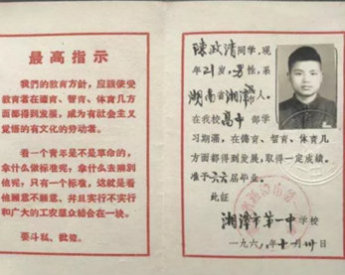 最高指示
我們的教育方針，應該使受
教育者在德育、智育、体育几方
面都得到发展，成为有社会主义
觉悟的有文化的劳动者。
看一个青年是不是革命的，
拿什么做标准呢，拿什么去辨别
他呢，只有一个标准，这就是看
他愿意不愿意、并且实行不实行
和广大的工农群众结合在一块。
要斗私、批修。
陳政清同学，现
年21岁，男性，系
湖南省湘潭人。
在我校高中部学
习期满，在德育、智育、体育几
方面都得到发展，取得一定成绩。
准予六六届毕业。
此证
湘潭市第一中学校
一九六八年十一月卅日